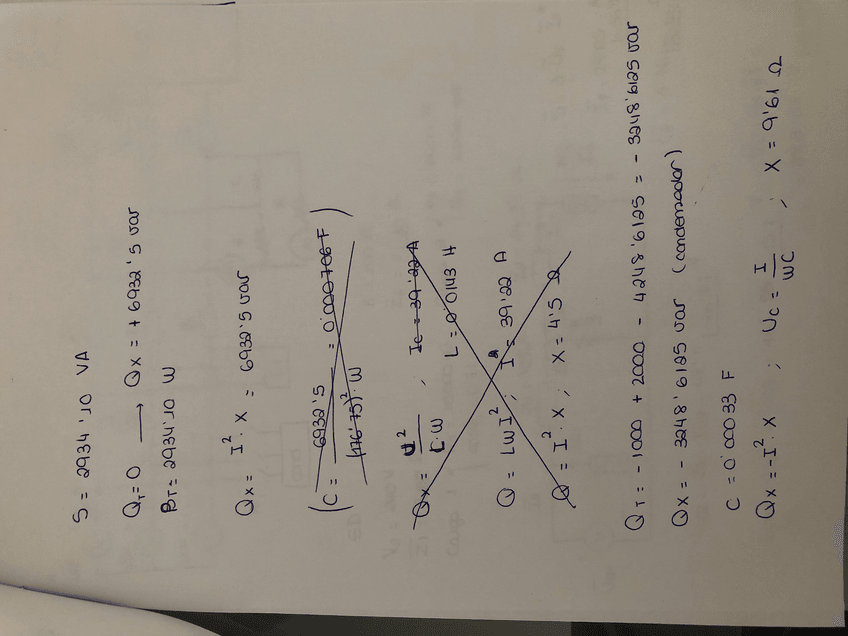 S = 2934'10 VA
QT = 0 → QX = + 6932'5 var
PT = 2934'10 W
QX = I² · X = 6932'5 var
(C = 6932'5 / (176'75)² · W = 0'000706 F)
QX = U² / L·W , IC = 39'22 A
L = 0'0143 H
Q = LWI² ; I = 39'22 A
Q = I² · X ; X = 4'5 Ω
QT = - 1000 + 2000 - 4248'6125 = - 3248'6125 var
QX = - 3248'6125 var (condensador)
C = 0'00033 F
QX = -I² · X ; UC = I / WC ; X = 9'61 Ω